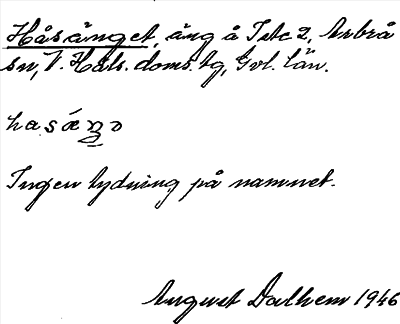 Håsänget, äng å Tste 2, Arbrå
sn, V. Häls. doms. tg, Gvl. län.
Ingen tydning på namnet.
August Dalhem 1946